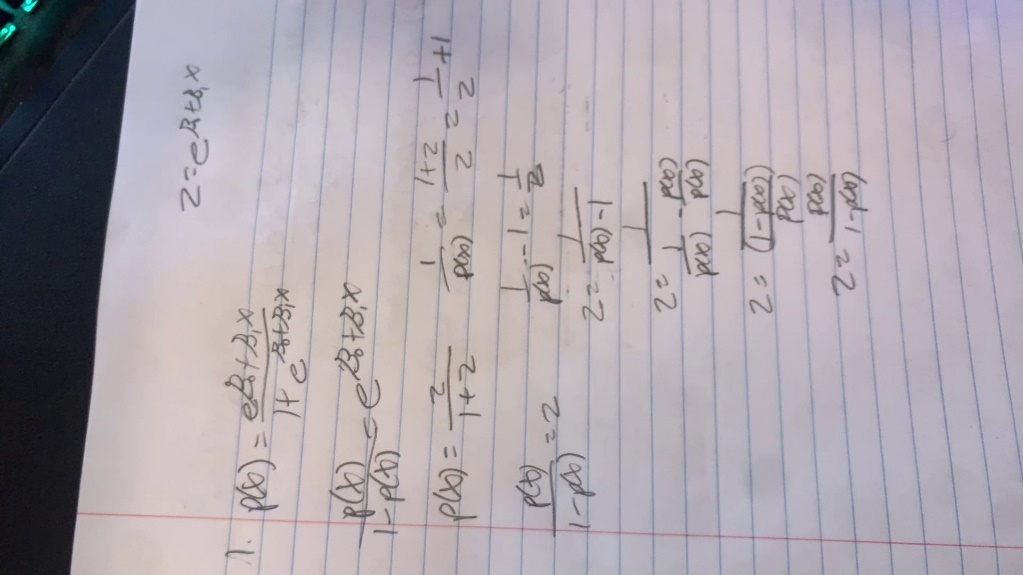 Z = e^{β₀+β₁x}
1. p(x) = \frac{e^{β₀+β₁x}}{1+e^{β₀+β₁x}}
\frac{p(x)}{1-p(x)} = e^{β₀+β₁x}
p(x) = \frac{Z}{1+Z}   \frac{1}{p(x)} = \frac{1+Z}{Z} = \frac{1}{Z} + 1
\frac{p(x)}{1-p(x)} = Z   \frac{1}{p(x)} - 1 = \frac{1}{Z}
Z = \frac{1}{\frac{1}{p(x)} - 1}
Z = \frac{1}{\frac{1}{p(x)} - \frac{p(x)}{p(x)}}
Z = \frac{1}{\frac{(1-p(x))}{p(x)}}
Z = \frac{p(x)}{1-p(x)}